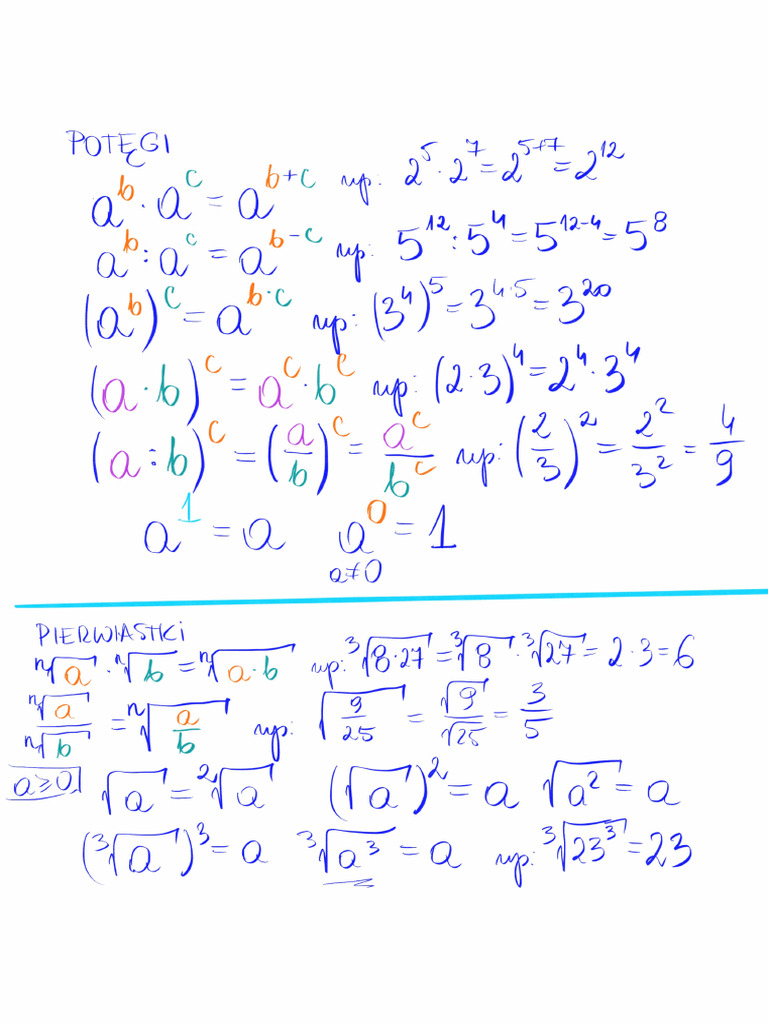 POTĘGI
a^b · a^c = a^(b+c) np: 2^5 · 2^7 = 2^(5+7) = 2^12
a^b : a^c = a^(b-c) np: 5^12 : 5^4 = 5^(12-4) = 5^8
(a^b)^c = a^(b·c) np: (3^4)^5 = 3^(4·5) = 3^20
(a · b)^c = a^c · b^c np: (2 · 3)^4 = 2^4 · 3^4
(a : b)^c = (a/b)^c = a^c/b^c np: (2/3)^2 = 2^2/3^2 = 4/9
a^1 = a a^0 = 1
a≠0
PIERWIASTKI
ⁿ√a · ⁿ√b = ⁿ√(a·b) np: ³√(8·27) = ³√8 · ³√27 = 2·3 = 6
ⁿ√a/ⁿ√b = ⁿ√(a/b) np: √(9/25) = √9/√25 = 3/5
a≥0 √a = ²√a (√a)^2 = a √(a^2) = a
(³√a)^3 = a ³√(a^3) = a np: ³√(23^3) = 23